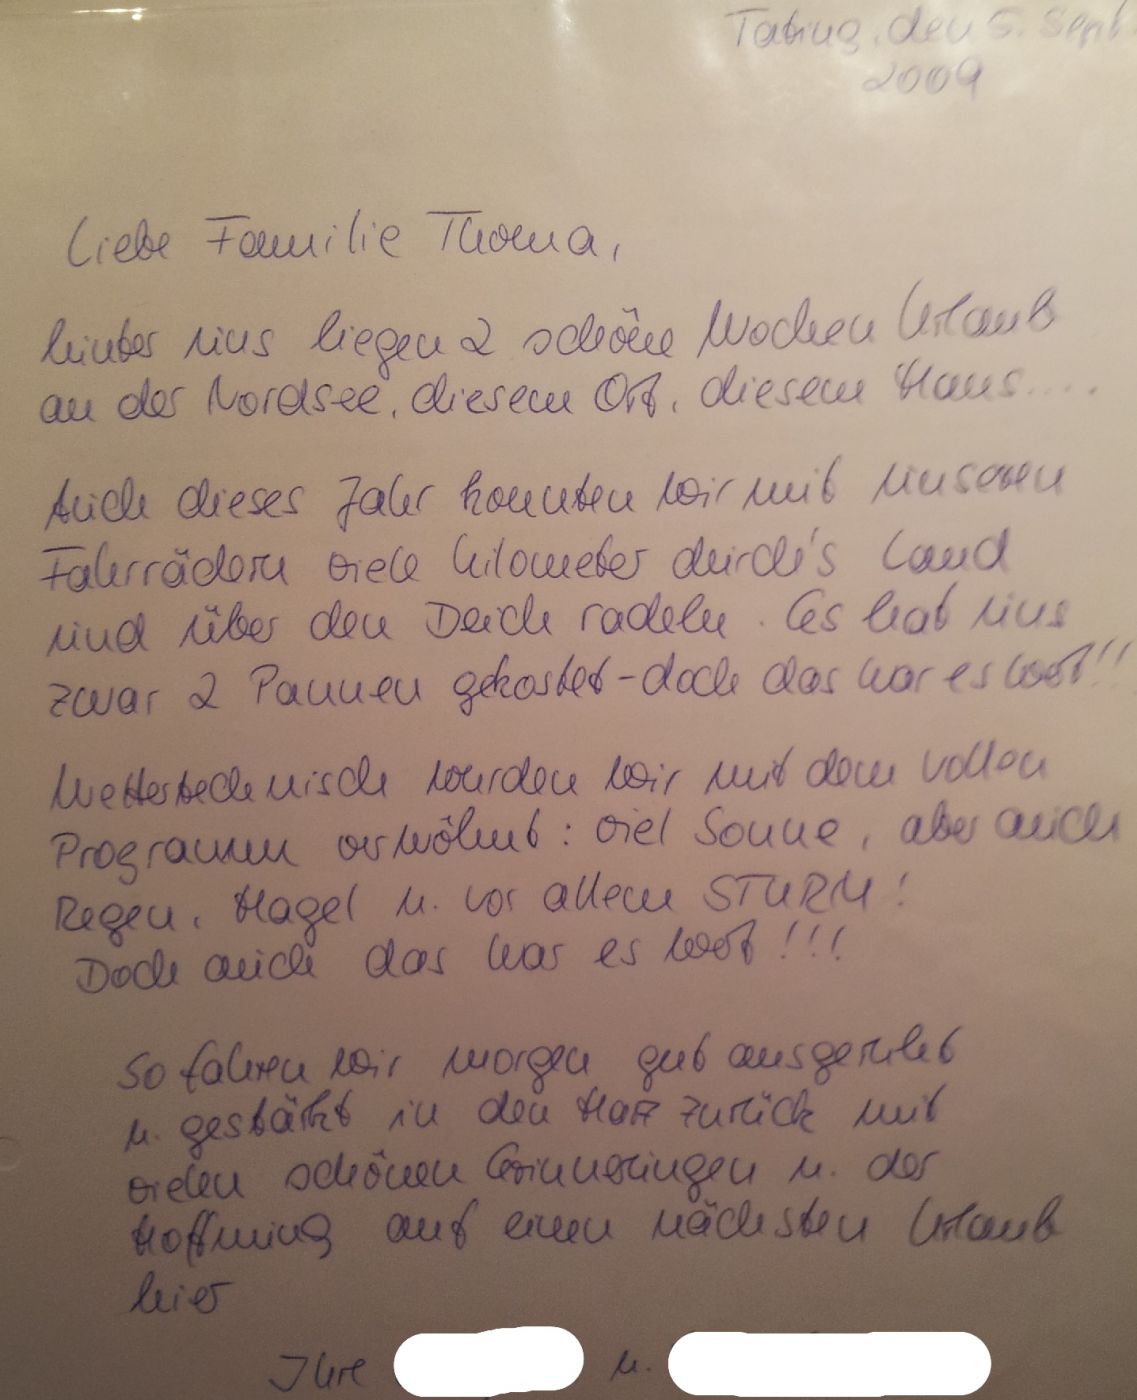 Tating, den 5. Sept.
2009
Liebe Familie Thoma,
hinter uns liegen 2 schöne Wochen Urlaub
an der Nordsee, diesem Ort, diesem Haus....
Auch dieses Jahr konnten wir mit unseren
Fahrrädern viele Kilometer durch's Land
und über den Deich radeln. Es hat uns
zwar 2 Pannen gekostet - doch das war es wert!!
Wettertechnisch wurden wir mit dem vollen
Programm verwöhnt: viel Sonne, aber auch
Regen, Hagel u. vor allem STURM!
Doch auch das war es wert!!!
So fahren wir morgen gut ausgeruht
u. gestärkt in den Harz zurück mit
vielen schönen Erinnerungen u. der
Hoffnung auf einen nächsten Urlaub
hier
Ihre u.